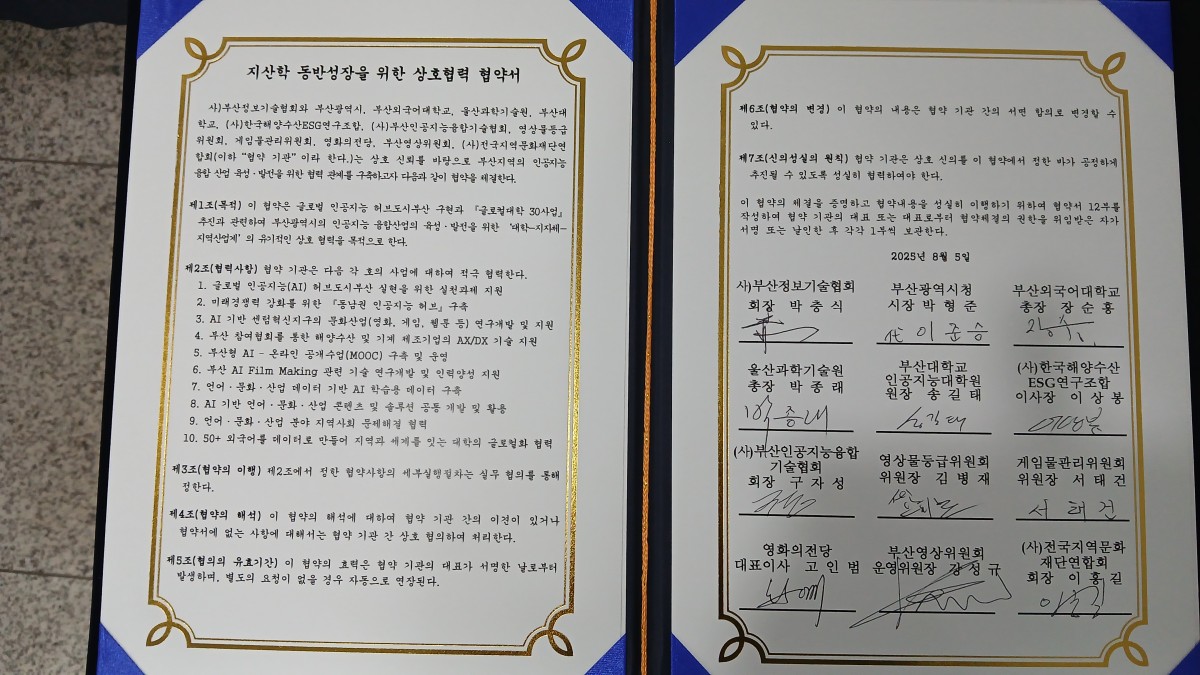 지산학 동반성장을 위한 상호협력 협약서
사)부산정보기술협회와 부산광역시, 부산외국어대학교, 울산과학기술원, 부산대
학교, (사)한국해양수산ESG연구조합, (사)부산인공지능융합기술협회, 영상물등급
위원회, 게임물관리위원회, 영화의전당, 부산영상위원회, (사)전국지역문화재단연
합회(이하 “협약 기관” 이라 한다.)는 상호 신뢰를 바탕으로 부산지역의 인공지능
융합 산업 육성·발전을 위한 협력 관계를 구축하고자 다음과 같이 협약을 체결한다.
제1조(목적) 이 협약은 글로벌 인공지능 허브도시부산 구현과 『글로컬대학 30사업』
추진과 관련하여 부산광역시의 인공지능 융합산업의 육성·발전을 위한 '대학-지자체-
지역산업계' 의 유기적인 상호 협력을 목적으로 한다.
제2조(협력사항) 협약 기관은 다음 각 호의 사업에 대하여 적극 협력한다.
1. 글로벌 인공지능(AI) 허브도시부산 실현을 위한 실천과제 지원
2. 미래경쟁력 강화를 위한 『동남권 인공지능 허브』 구축
3. AI 기반 센텀혁신지구의 문화산업(영화, 게임, 웹툰 등) 연구개발 및 지원
4. 부산 참여협회를 통한 해양수산 및 기계 제조기업의 AX/DX 기술 지원
5. 부산형 AI - 온라인 공개수업(MOOC) 구축 및 운영
6. 부산 AI Film Making 관련 기술 연구개발 및 인력양성 지원
7. 언어·문화·산업 데이터 기반 AI 학습용 데이터 구축
8. AI 기반 언어·문화·산업 콘텐츠 및 솔루션 공동 개발 및 활용
9. 언어·문화·산업 분야 지역사회 문제해결 협력
10. 50+ 외국어를 데이터로 만들어 지역과 세계를 잇는 대학의 글로컬화 협력
제3조(협약의 이행) 제2조에서 정한 협약사항의 세부실행절차는 실무 협의를 통해
정한다.
제4조(협약의 해석) 이 협약의 해석에 대하여 협약 기관 간의 이견이 있거나
협약서에 없는 사항에 대해서는 협약 기관 간 상호 협의하여 처리한다.
제5조(협의의 유효기간) 이 협약의 효력은 협약 기관의 대표가 서명한 날로부터
발생하며, 별도의 요청이 없을 경우 자동으로 연장된다.
제6조(협약의 변경) 이 협약의 내용은 협약 기관 간의 서면 합의로 변경할 수
있다.
제7조(신의성실의 원칙) 협약 기관은 상호 신의를 이 협약에서 정한 바가 공정하게
추진될 수 있도록 성실히 협력하여야 한다.
이 협약의 체결을 증명하고 협약내용을 성실히 이행하기 위하여 협약서 12부를
작성하여 협약 기관의 대표 또는 대표로부터 협약체결의 권한을 위임받은 자가
서명 또는 날인한 후 각각 1부씩 보관한다.
2025년 8월 5일
사)부산정보기술협회
회장 박충식
부산광역시청
시장 박형준
代 이준승
부산외국어대학교
총장 장순흥
울산과학기술원
총장 박종래
박종래
부산대학교
인공지능대학원
원장 송길태
송길태
(사)한국해양수산
ESG연구조합
이사장 이상봉
(사)부산인공지능융합
기술협회
회장 구자성
영상물등급위원회
위원장 김병재
게임물관리위원회
위원장 서태건
서태건
영화의전당
대표이사 고인범
부산영상위원회
운영위원장 강성규
(사)전국지역문화
재단연합회
회장 이홍길